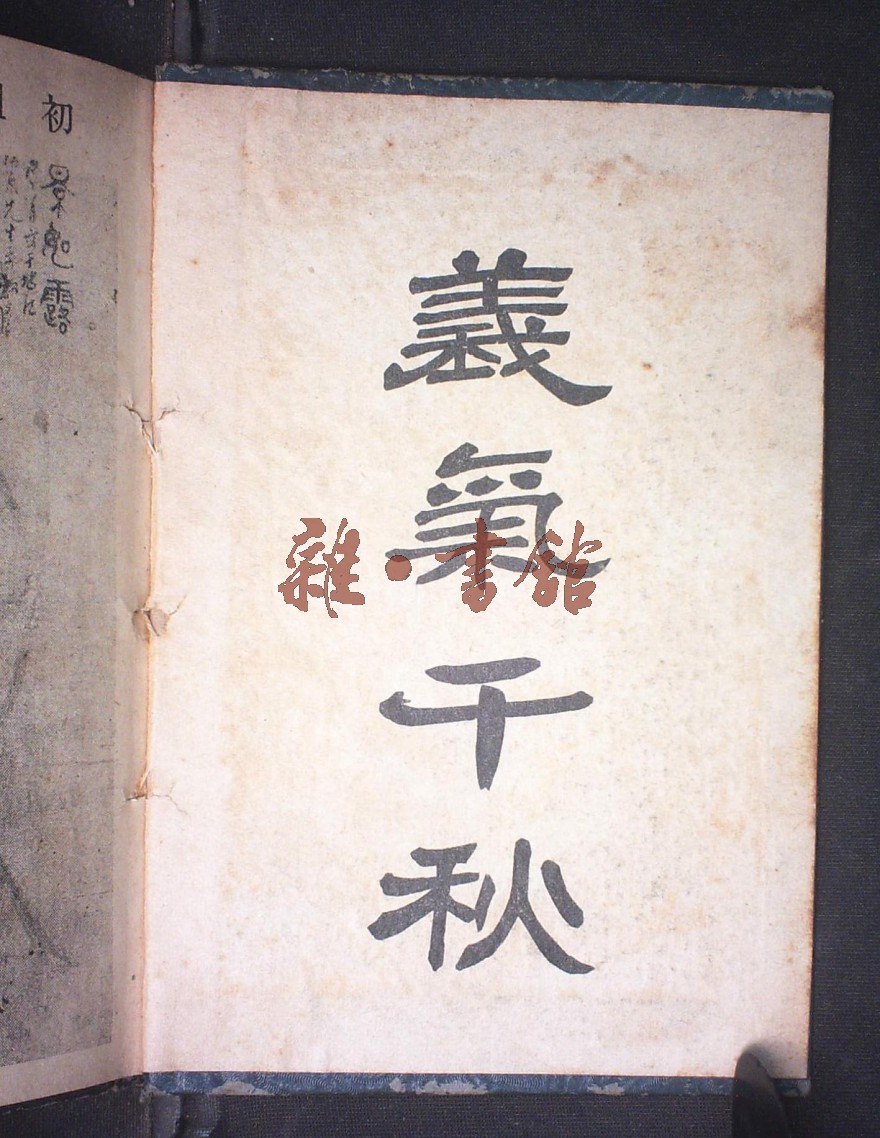 義氣千秋
雜·書館
初